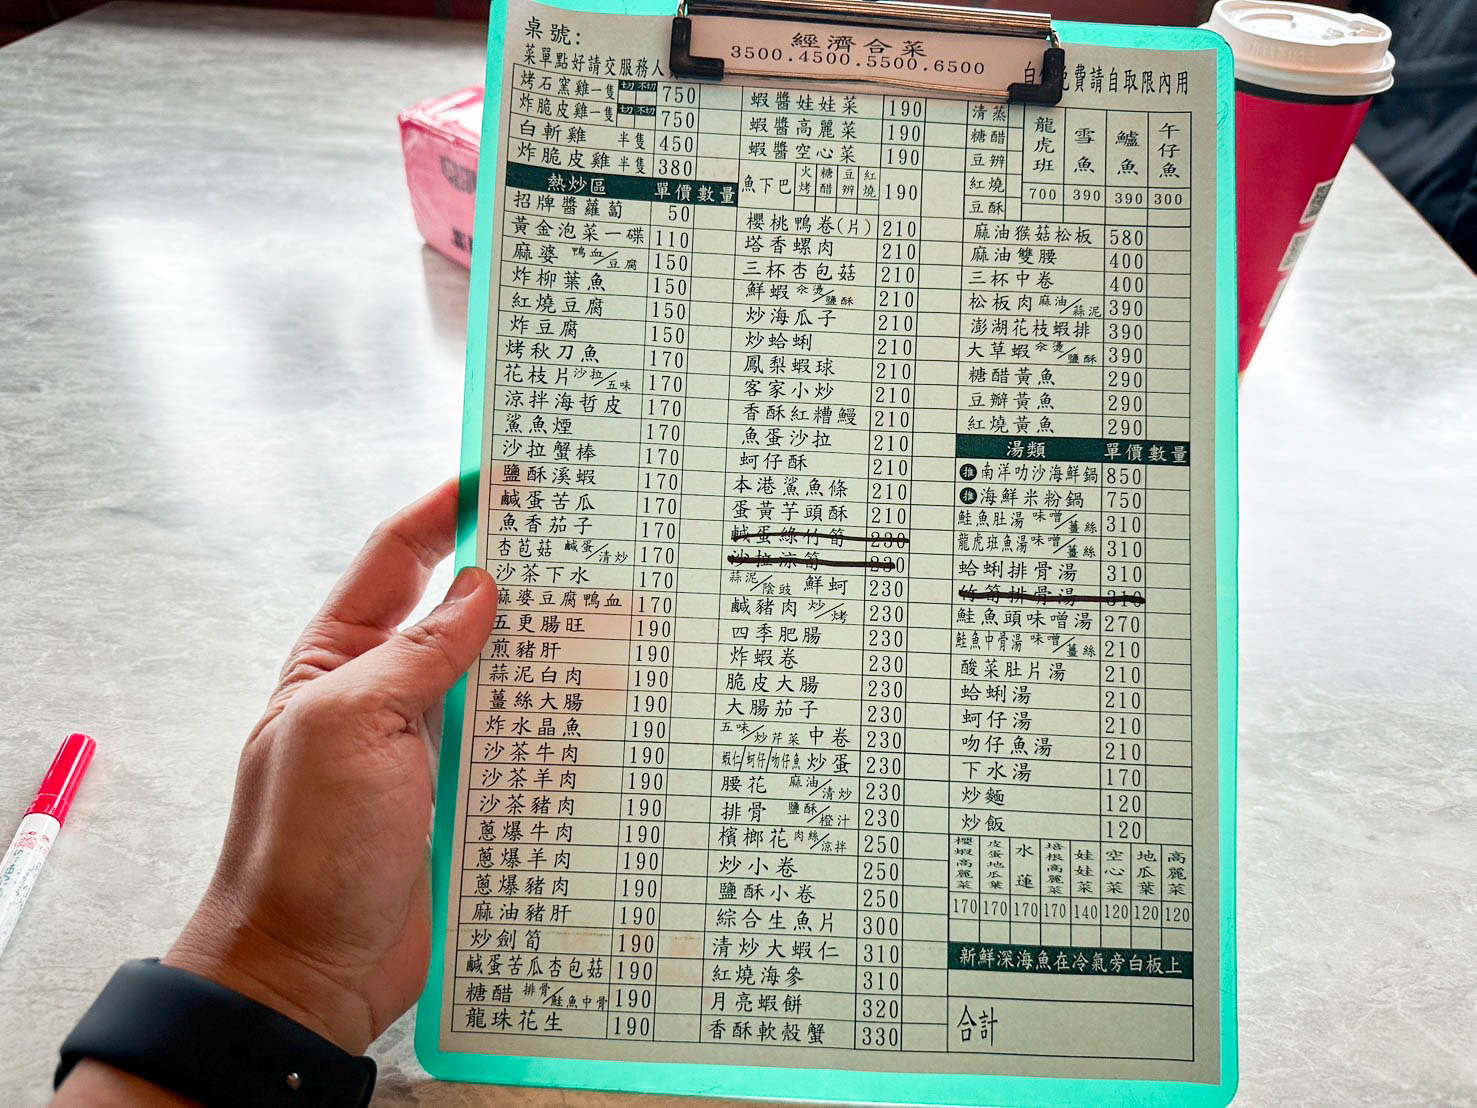 經濟合菜
3500.4500.5500.6500
桌號:
菜單點好請交服務人
費請自取限內用
烤石窯雞一隻 切 不切 750
炸脆皮雞一隻 切 不切 750
白斬雞 半隻 450
炸脆皮雞 半隻 380
熱炒區 單價 數量
招牌醬蘿蔔 50
黃金泡菜一碟 110
麻婆 鴨血/豆腐 150
炸柳葉魚 150
紅燒豆腐 150
炸豆腐 150
烤秋刀魚 170
花枝片 沙拉/五味 170
涼拌海哲皮 170
鯊魚煙 170
沙拉蟹棒 170
鹽酥溪蝦 170
鹹蛋苦瓜 170
魚香茄子 170
杏苞菇 鹹蛋/清炒 170
沙茶下水 170
麻婆豆腐鴨血 170
五更腸旺 190
煎豬肝 190
蒜泥白肉 190
薑絲大腸 190
炸水晶魚 190
沙茶牛肉 190
沙茶羊肉 190
沙茶豬肉 190
蔥爆牛肉 190
蔥爆羊肉 190
蔥爆豬肉 190
麻油豬肝 190
炒劍筍 190
鹹蛋苦瓜杏包菇 190
糖醋 排骨/鮭魚中骨 190
龍珠花生 190
蝦醬娃娃菜 190
蝦醬高麗菜 190
蝦醬空心菜 190
魚下巴 火烤 糖醋 豆辨 紅燒 190
櫻桃鴨卷(片) 210
塔香螺肉 210
三杯杏包菇 210
鮮蝦 汆燙/鹽酥 210
炒海瓜子 210
炒蛤蜊 210
鳳梨蝦球 210
客家小炒 210
香酥紅糟鰻 210
魚蛋沙拉 210
蚵仔酥 210
本港鯊魚條 210
蛋黃芋頭酥 210
鹹蛋綠竹筍 230
沙拉涼筍 230
蒜泥/陰豉 鮮蚵 230
鹹豬肉 炒/烤 230
四季肥腸 230
炸蝦卷 230
脆皮大腸 230
大腸茄子 230
五味/炒芹菜 中卷 230
蝦仁/蚵仔/吻仔魚 炒蛋 230
腰花 麻油/清炒 230
排骨 鹽酥/橙汁 230
檳榔花 肉絲/涼拌 250
炒小卷 250
鹽酥小卷 250
綜合生魚片 300
清炒大蝦仁 310
紅燒海參 310
月亮蝦餅 320
香酥軟殼蟹 330
清蒸
糖醋
豆辨
紅燒
豆酥
龍虎班 雪魚 鱸魚 午仔魚
700 390 390 300
麻油猴菇松板 580
麻油雙腰 400
三杯中卷 400
松板肉 麻油/蒜泥 390
澎湖花枝蝦排 390
大草蝦 汆燙/鹽酥 390
糖醋黃魚 290
豆瓣黃魚 290
紅燒黃魚 290
湯類 單價 數量
推 南洋叻沙海鮮鍋 850
推 海鮮米粉鍋 750
鮭魚肚湯 味噌/薑絲 310
龍虎班魚湯 味噌/薑絲 310
蛤蜊排骨湯 310
竹筍排骨湯 310
鮭魚頭味噌湯 270
鮭魚中骨湯 味噌/薑絲 210
酸菜肚片湯 210
蛤蜊湯 210
蚵仔湯 210
吻仔魚湯 210
下水湯 170
炒麵 120
炒飯 120
櫻蝦高麗菜 皮蛋地瓜葉 水蓮 培根高麗菜 娃娃菜 空心菜 地瓜葉 高麗菜
170 170 170 170 140 120 120 120
新鮮深海魚在冷氣旁白板上
合計